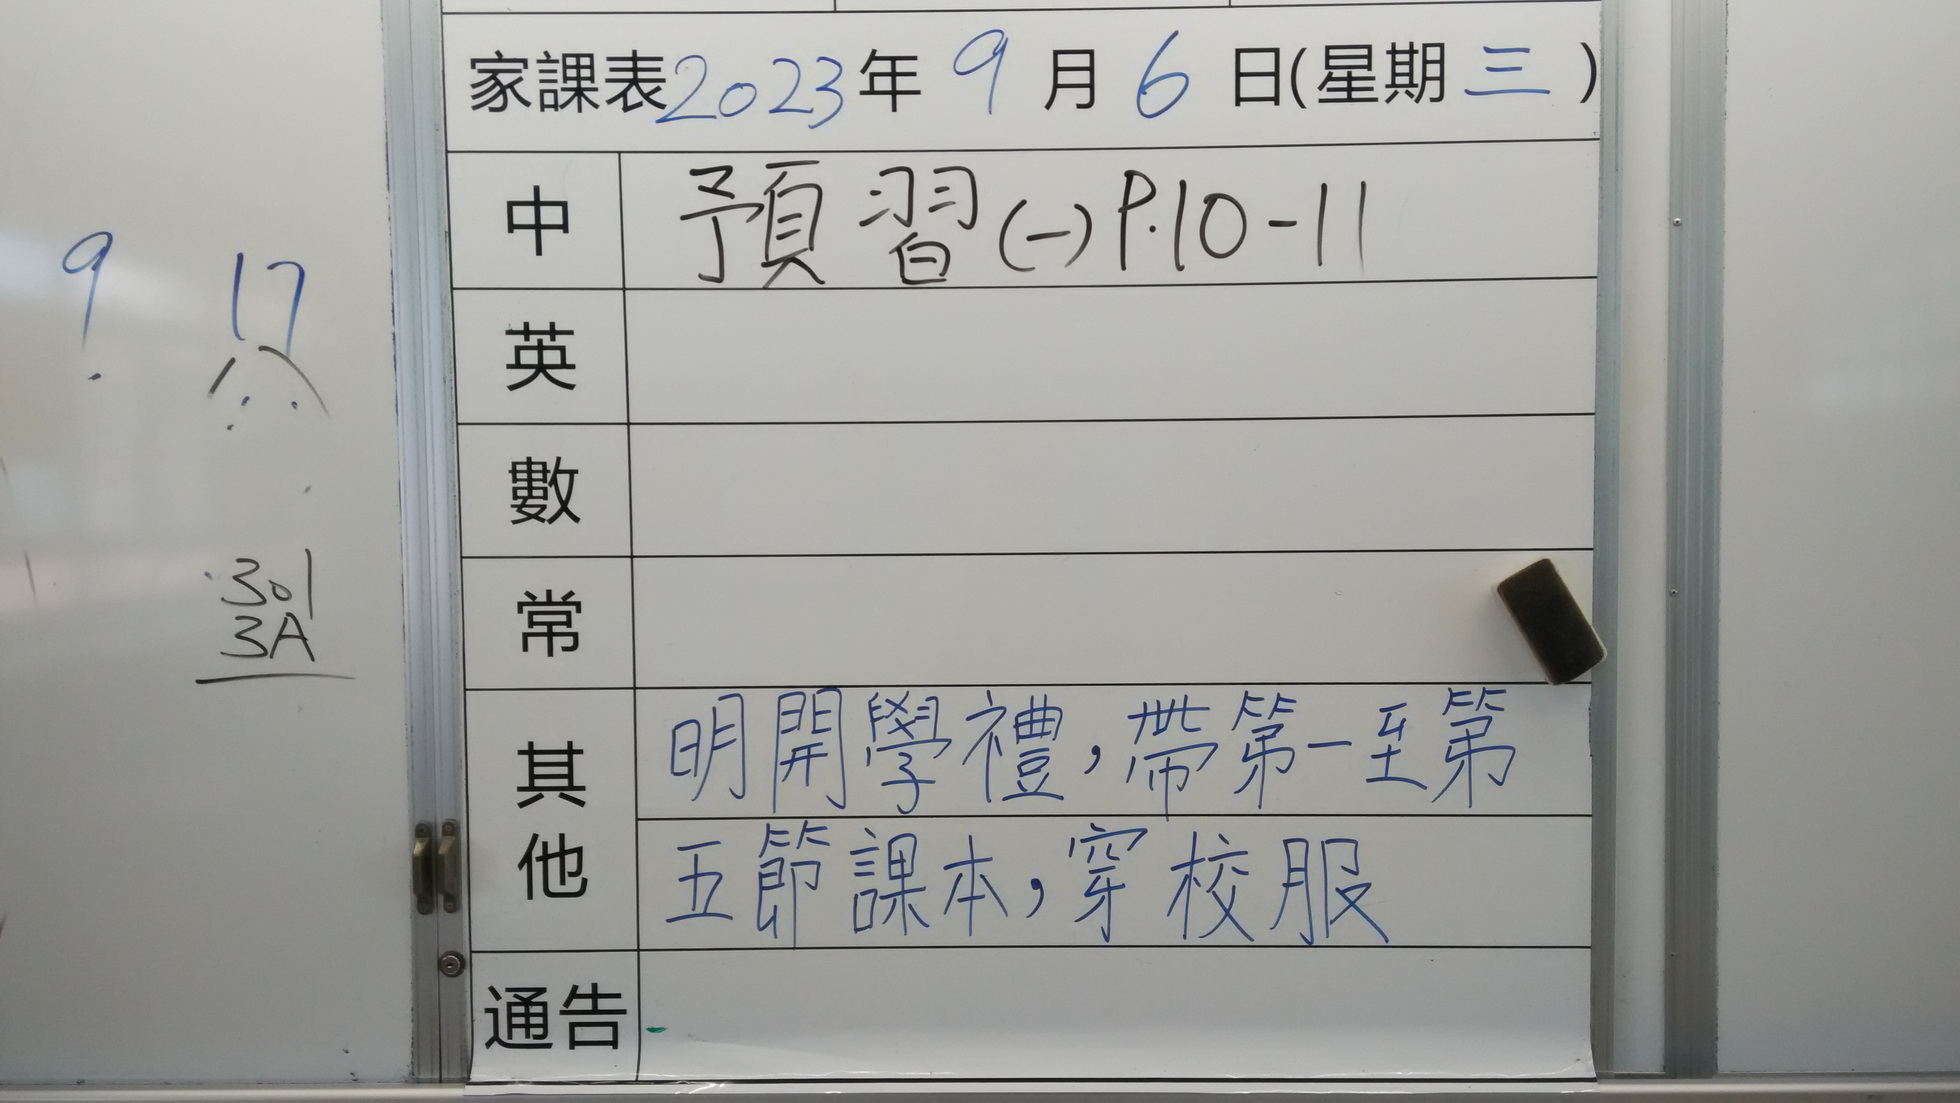 家課表2023年 9 月 6 日(星期三)
中 預習(一)P.10-11
英
數
常
其他 明開學禮,帶第一至第
五節課本,穿校服
通告
9 17
301
3A